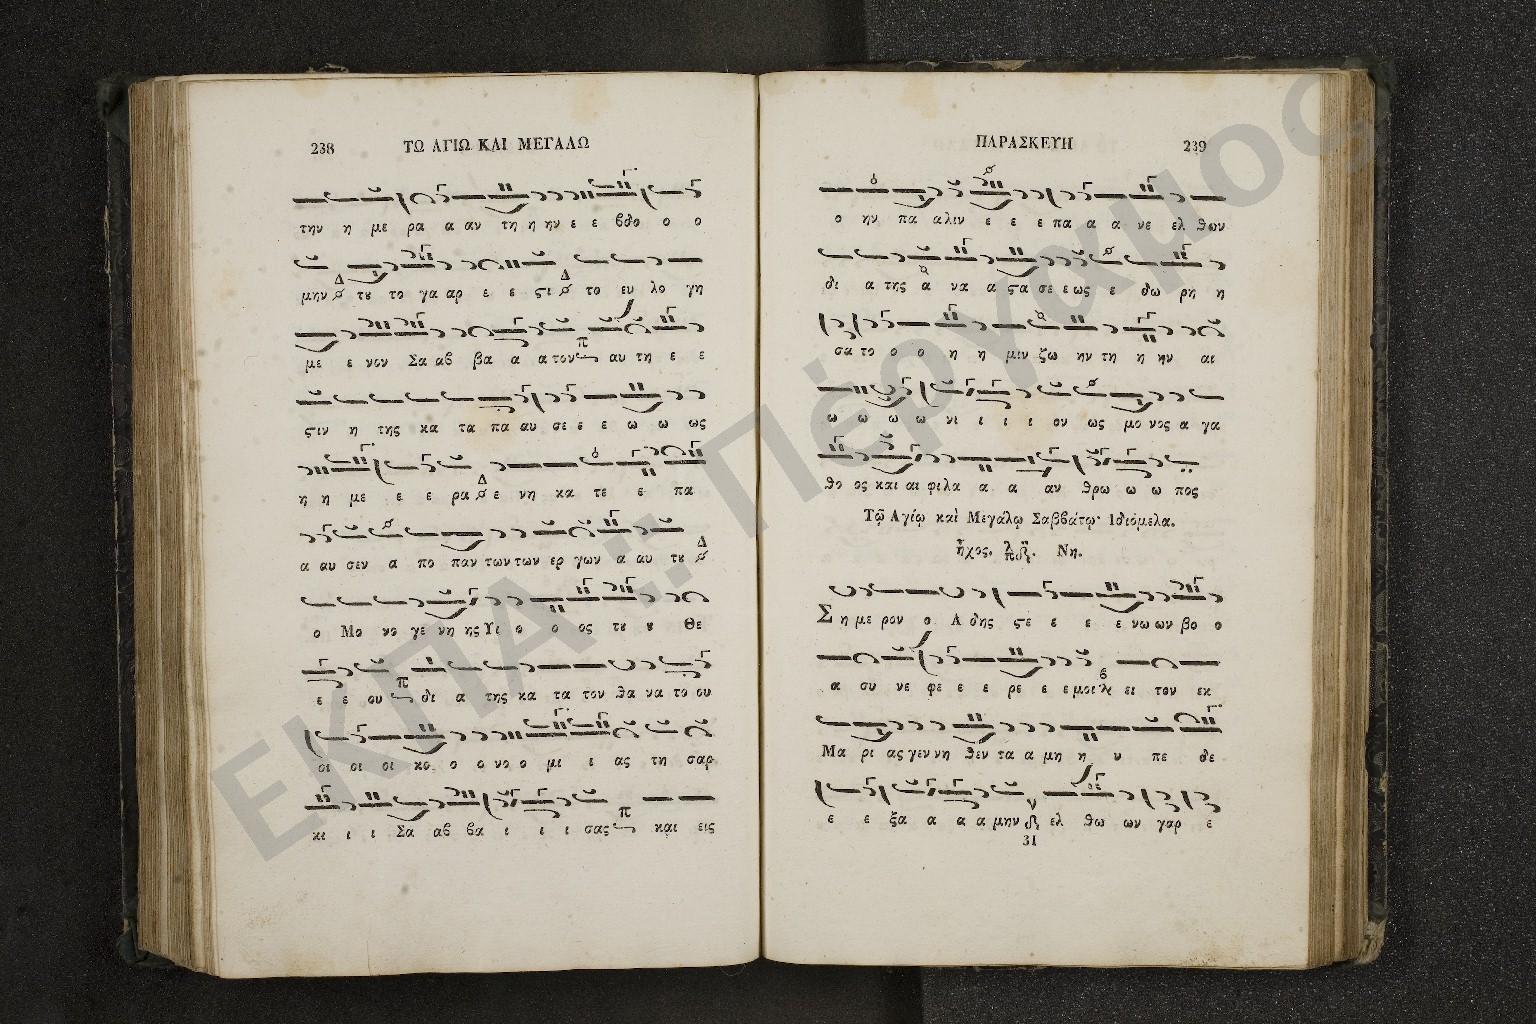 238 ΤΩ ΑΓΙΩ ΚΑΙ ΜΕΓΑΛΩ
την η με ρα α αν τη η ην ε ε βδο ο ο
μην Δ τȣ το γα αρ ε ε ϛι Δ το ευ λο γη
με ε νον Σα αβ βα α α τον π αυ τη ε ε
ϛιν η της κα τα πα αυ σε ε ε ω ω ως
η η με ε ε ρα Δ ε νη κα τε ε πα
α αυ σεν α πο παν των των ερ γων α αυ τȣ Δ
ο Μο νο γε νη ης Υι ο ο ος τȣ ȣ Θε
ε ε ου π δι α της κα τα τον θα να το ου
οι οι οι κο ο ο νο ο μι ι ας τη σαρ
κι ι ι Σα αβ βα ι ι ι σας π και εις
ΠΑΡΑΣΚΕΥΗ 239
ο ην πα αλιν ε ε ε πα α α νε ελ θων
δι α της α να α ϛα σε ε ως ε δω ρη η
σα το ο ο η η μιν ζω ην τη η ην αι
ω ω ω ω νι ι ι ι ον ως μο νος α γα
θο ος και αι φιλα α α αν θρω ω ω πος
Τῷ Αγίῳ καὶ Μεγάλῳ Σαββάτῳ· Ιδιόμελα.
ἦχος. Νη.
Σ η με ρον ο Α δης ϛε ε ε ε νω ων βο ο
α συ νε φε ε ε ρε ε ε μοι ει τον εκ
Μα ρι ας γεν νη θεν τα α μη η υ πε δε
ε ε ξα α α α μην ελ θω ων γαρ ε
31
ΕΚΠΑ :: Πέργαμος